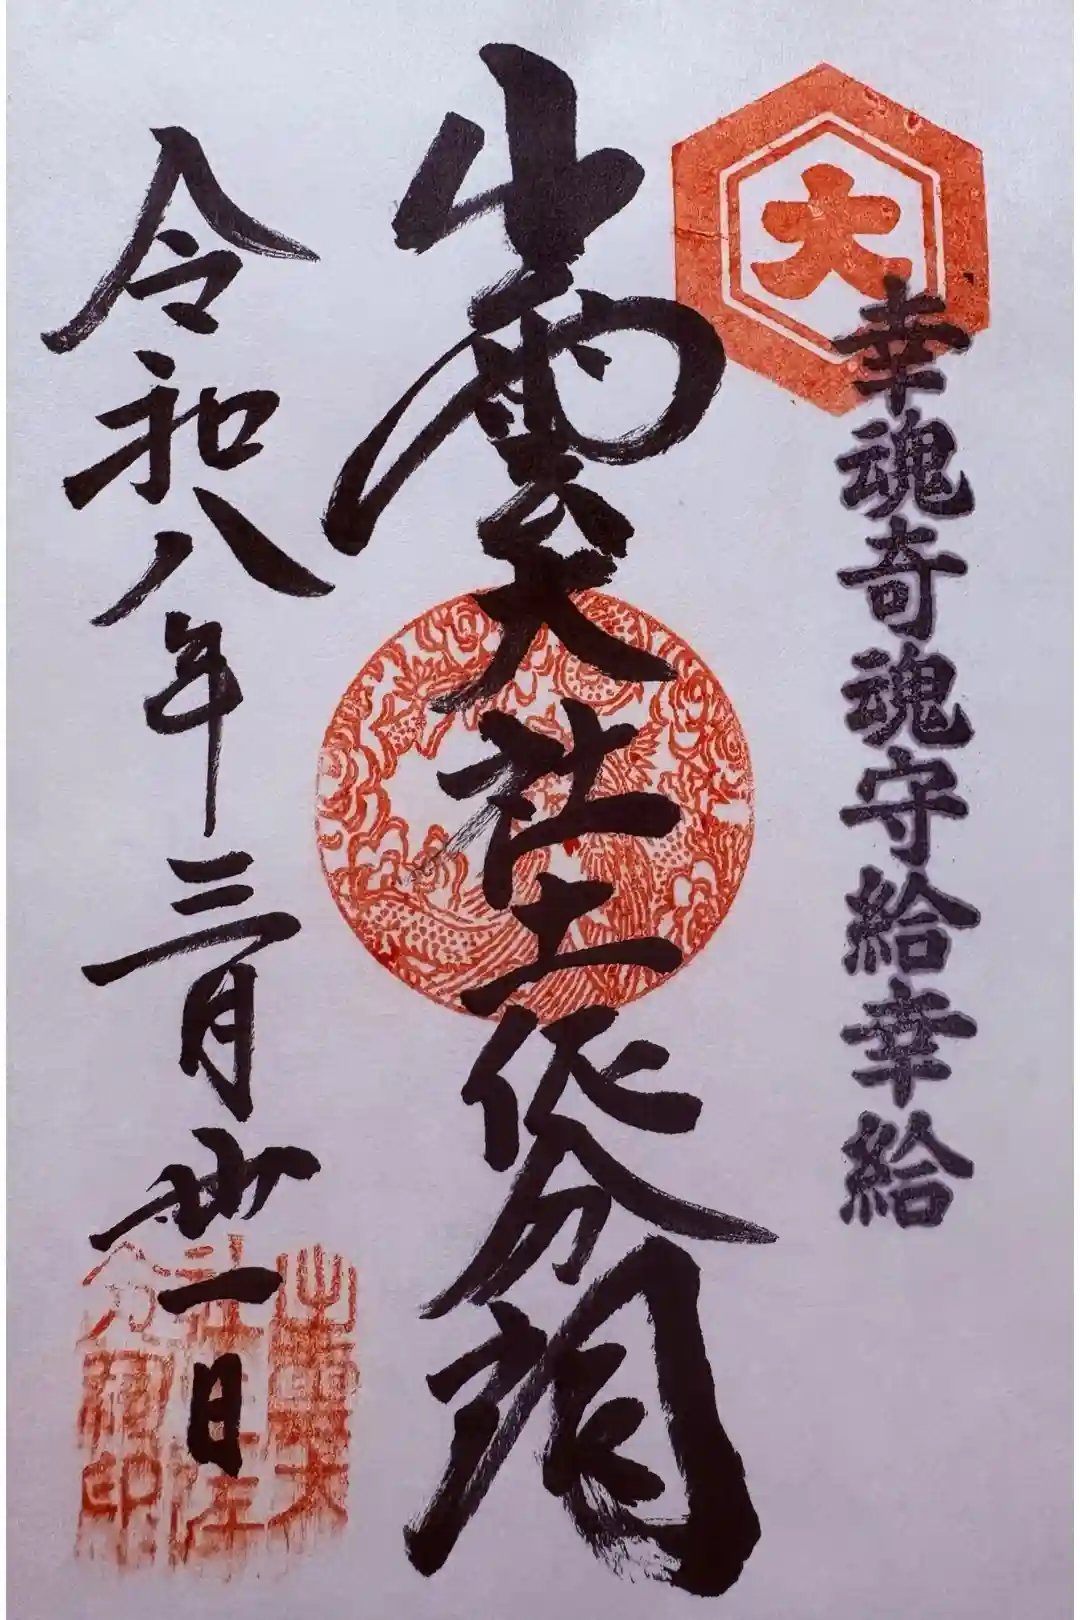 大
幸魂奇魂守給幸給
出雲大社土佐分祠
令和八年三月卅一日
出雲大
社土佐
分祠印